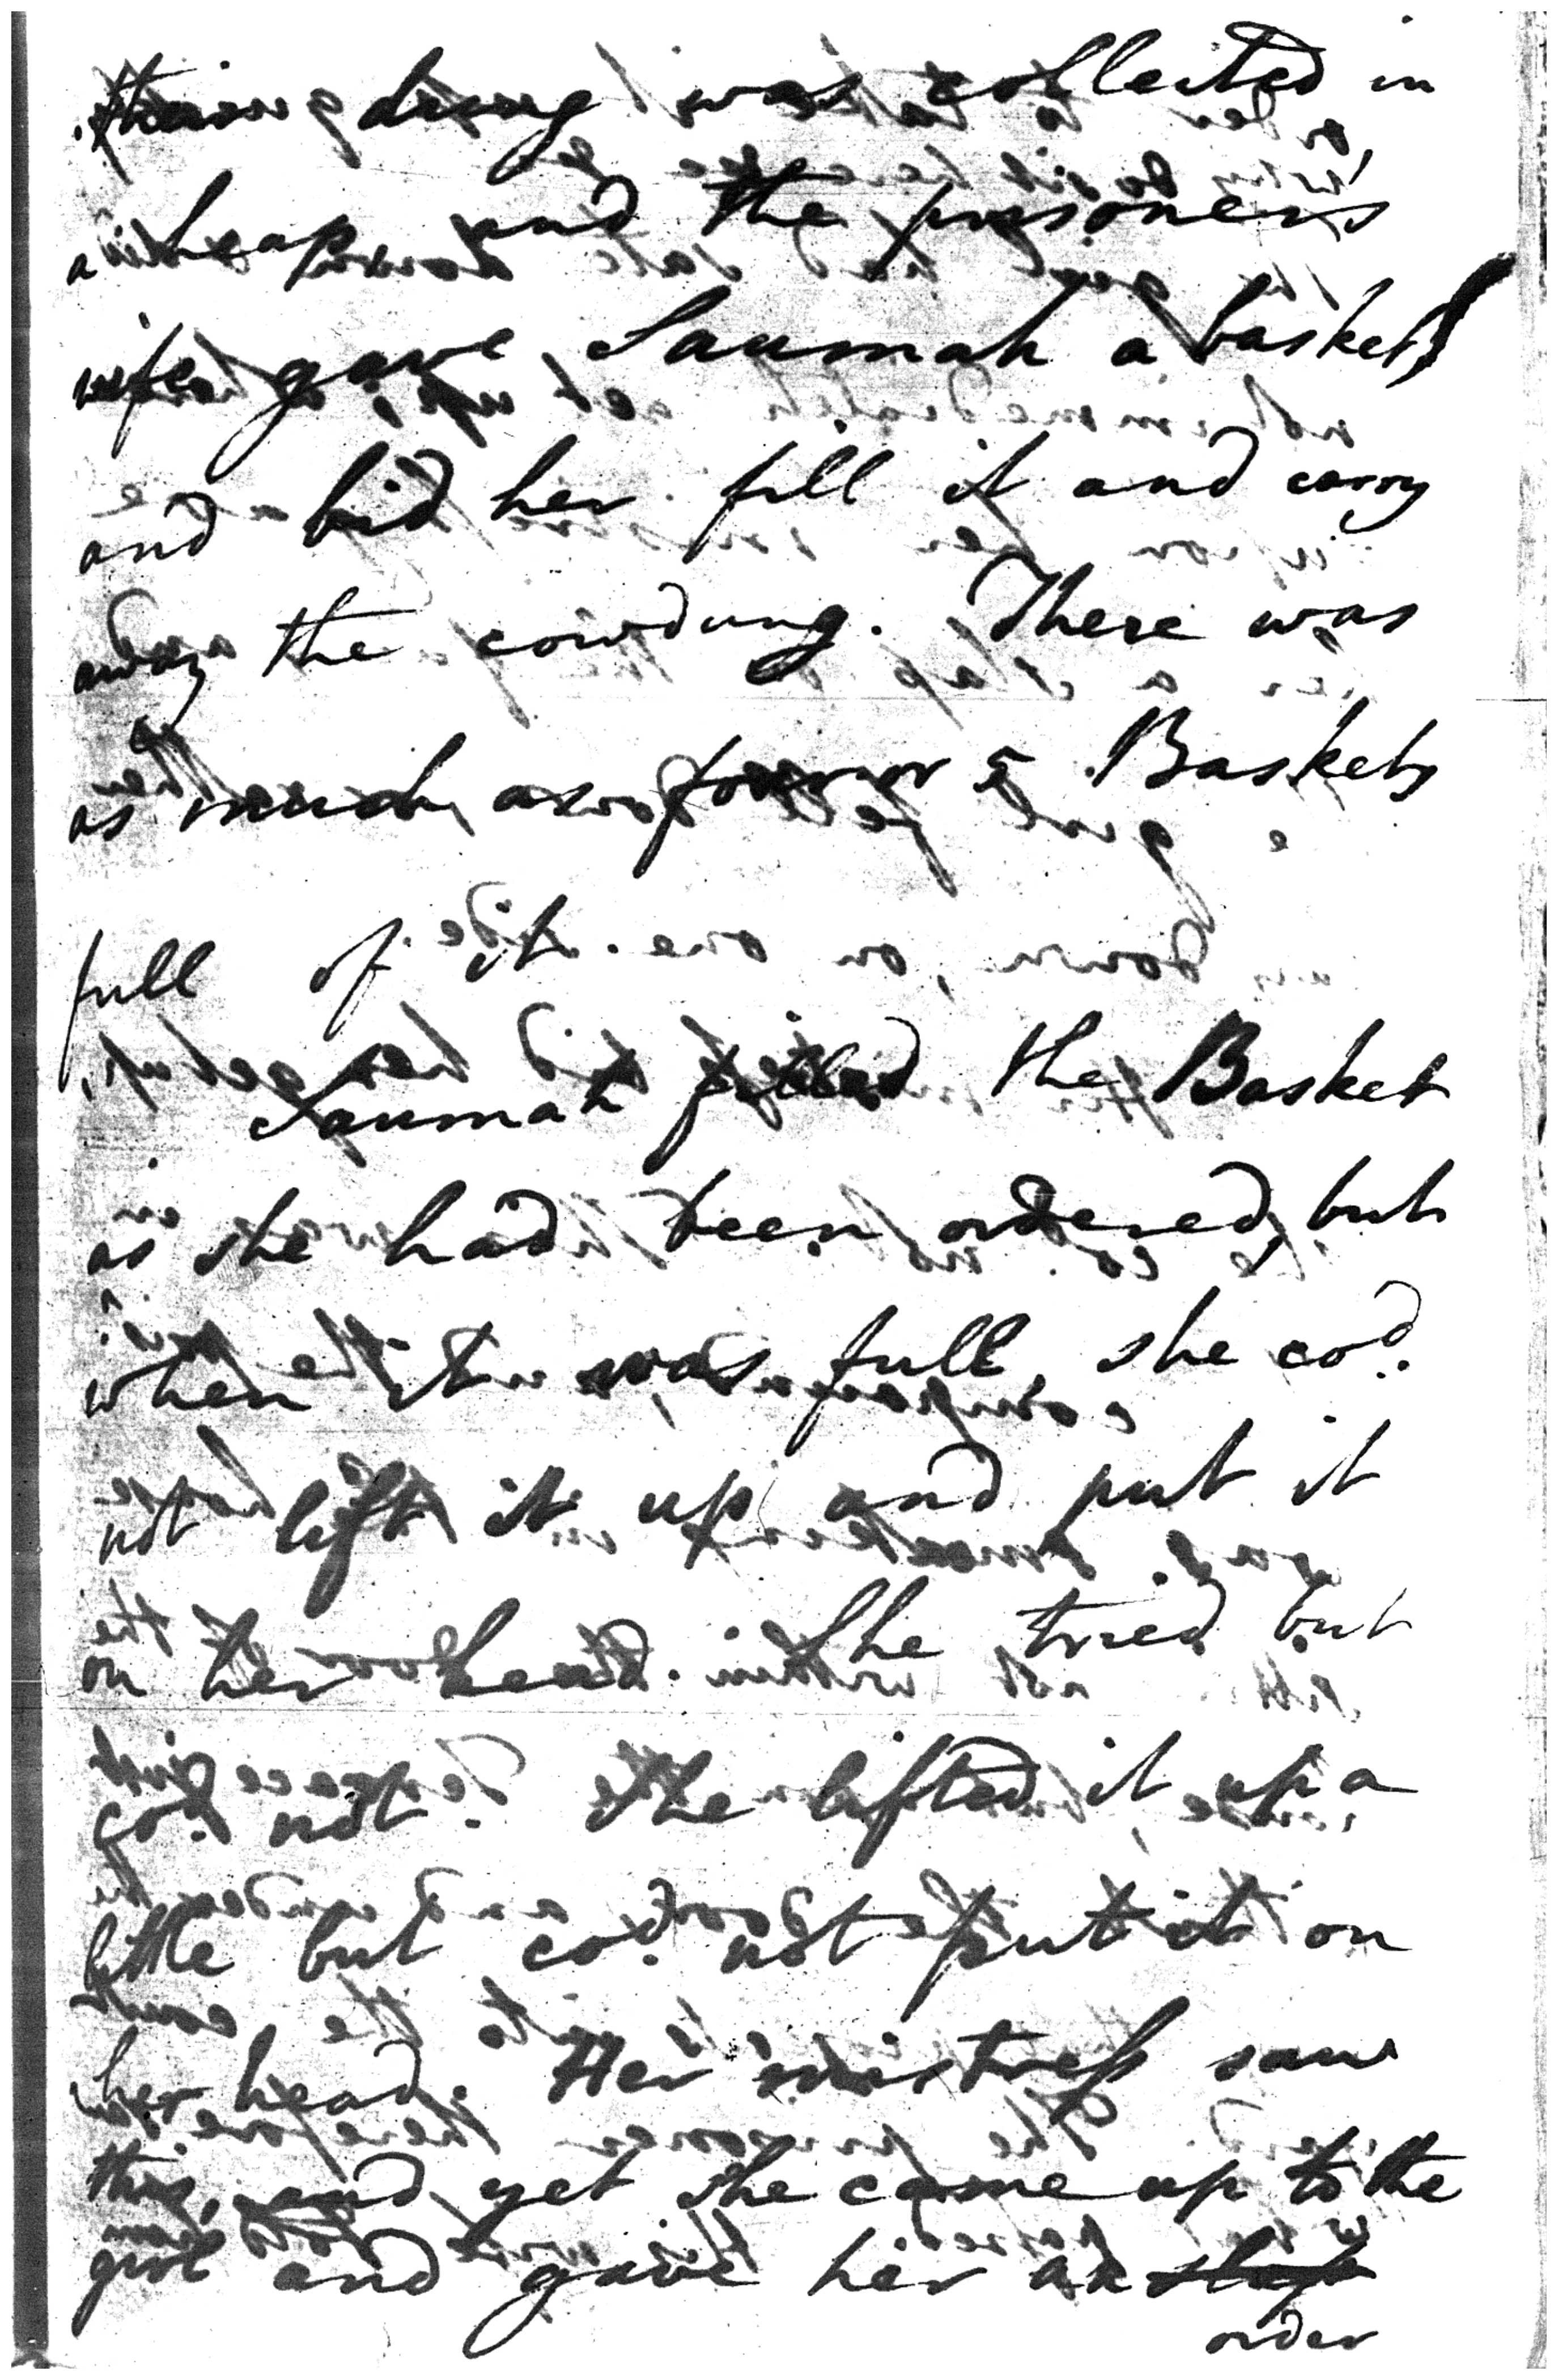 their dung was collected in
a heap and the prisoner's
wife gave Saumah a basket
and bid her fill it and carry
away the cowdung. There was
as much as four or 5 Baskets
full of it.
Saumah filled the Basket
as she had been ordered, but
when it was full, she cod.
not lift it up and put it
on her head. She tried but
cod. not. She lifted it up a
little but cod. not put it on
her head. Her mistress saw
this, and yet she came up to the
girl and gave her an slap
order